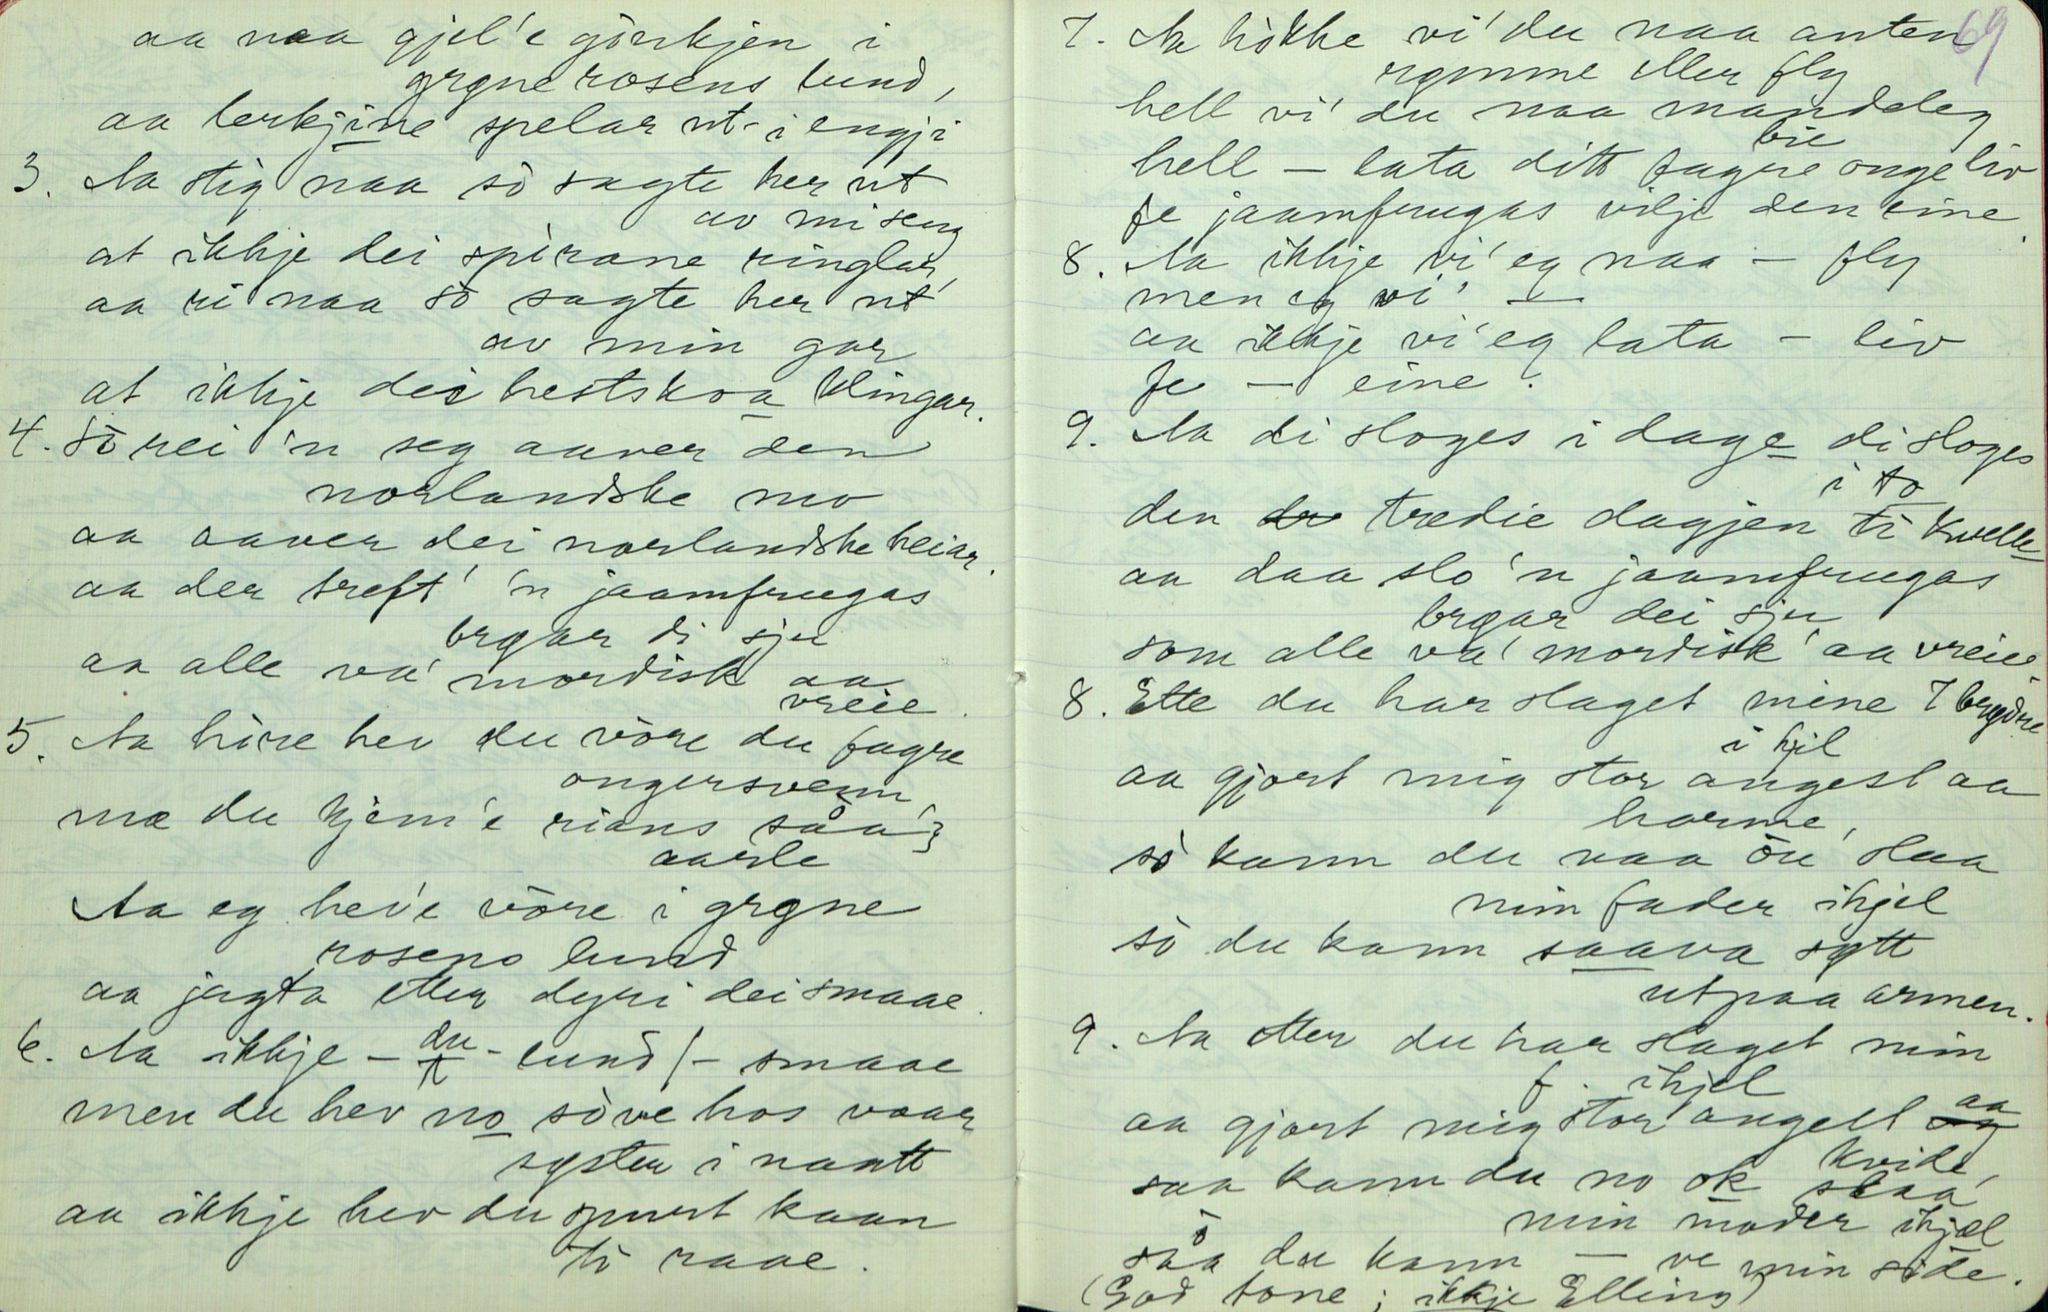 aa naa gjel'e görrkjen i
grøne rosens lund,
aa lerkjine spelar ut i engji
3. Aa stig naa sò sagte her ut
av mi seng
at ikkje dei spirane ringlar,
aa ri naa sò sagte her ut
av min gar
at ikkje dei hestskoa klingar.
4. Sò rei 'n seg aaver den
norlandske mo
aa aaver dei norlandske heiar.
aa der treft' 'n jaamfrugas
brøar di sju
aa alle va' mordisk aa
vreie.
5. Aa hòre hev du vòre du fagre
ongersvenn,
mæ du kjem'e rians såa'}
aarle
Aa eg hev'e vòre i grøne
rosens lund
aa jagta etter dyri dei smaae.
6. Aa ikkje – du – lund / – smaae
men du hev no sòve hos vaar
syster i naatt
aa ikkje hev du spurt kaan
ti raae.
69
7. Aa hòkke vi' du naa anten
rømme eller fly
hell vi' du naa mandeleg
bie
hell – lata ditt fagre onge liv
fe jaamfrugas vilje den eine.
8. Aa ikkje vi' eg naa – fly
men eg vi' —
aa ikkje vi' eg lata – liv
fe — eine.
9. Aa di sloges i dage di sloges
i to
den tredie dagjen ti kvelle
aa daa slo 'n jaamfrugas
brøar dei sju
som alle va' mordisk' aa vreie
8. Ette du har slaget mine 7 brødre
i hjel
aa gjort mig stor angest aa
harme,
sò kann du naa òu' slaa
min fader ihjel
sò du kann saava søtt
utpaa armen.
9. Aa etter du har slaget min
f. ihjel
aa gjort mig stor angest aa
kvide,
saa kann du no ok slaa
min moder ihjæl
saa du kann — ve min side.
(God tone; ikkje Elling)